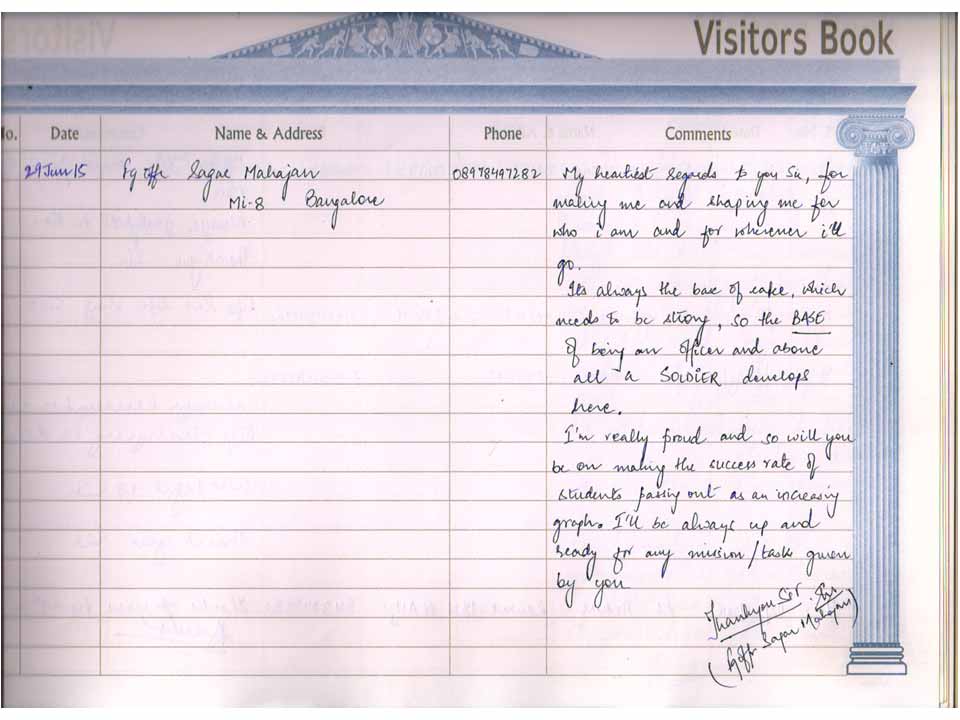 Visitors Book
No. Date Name & Address Phone Comments
29 Jun 15 Fg offr Sagar Mahajan 08978497282 My heartiest regards to you Sir, for
Mi-8 Bangalore making me and shaping me for
who i am and for wherever i'll
go.
Its always the base of cake, which
needs to be strong, so the BASE
of being an officer and above
all a SOLDIER develops
here.
I'm really proud and so will you
be on making the success rate of
students passing out as an increasing
graph. I'll be always up and
ready for any mission/task given
by you
Thankyou Sir
(Fg offr Sagar Mahajan)